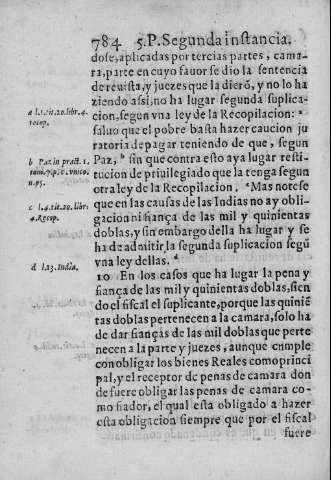 784 5. P. Segunda instancia.
dose, aplicadas por tercias partes, cama-
ra, parte en cuyo fauor se dio la sentencia
de reuista, y juezes que la dierõ, y no lo ha
ziendo assi, no ha lugar segunda suplica-
cion, segun vna ley de la Recopilacion: a
saluo que el pobre basta hazer caucion ju
ratoria de pagar teniendo de que, segun
Paz, b sin que contra esto aya lugar resti-
tucion de priuilegiado que la tenga segun
otra ley de la Recopilacion. c Mas notese
que en las causas de las Indias no ay obli-
gacion ni fiança de las mil y quinientas
doblas, y sin embargo della ha lugar y se
ha de admitir la segunda suplicacion segũ
vna ley dellas. d
10 En los casos que ha lugar la pena y
fiança de las mil y quinientas doblas, sien
do el fiscal el suplicante, porque las quiniẽ
tas doblas pertenecen a la camara, solo ha
de dar fianças de las mil doblas que perte
necen a la parte y juezes, aunque cumple
con obligar los bienes Reales como princi
pal, y el receptor de penas de camara don
de fuere obligar las penas de camara co-
mo fiador, el qual esta obligado a hazer
esta obligacion siempre que por el fiscal
fuere
a l.1. tit.20. libr.4.
recop.
b Paz in pract. 1.
tom. 7. p. c. vnico.
n.5.
c l.4. tit.20. libr.
4. Recop.
d l.13. India.